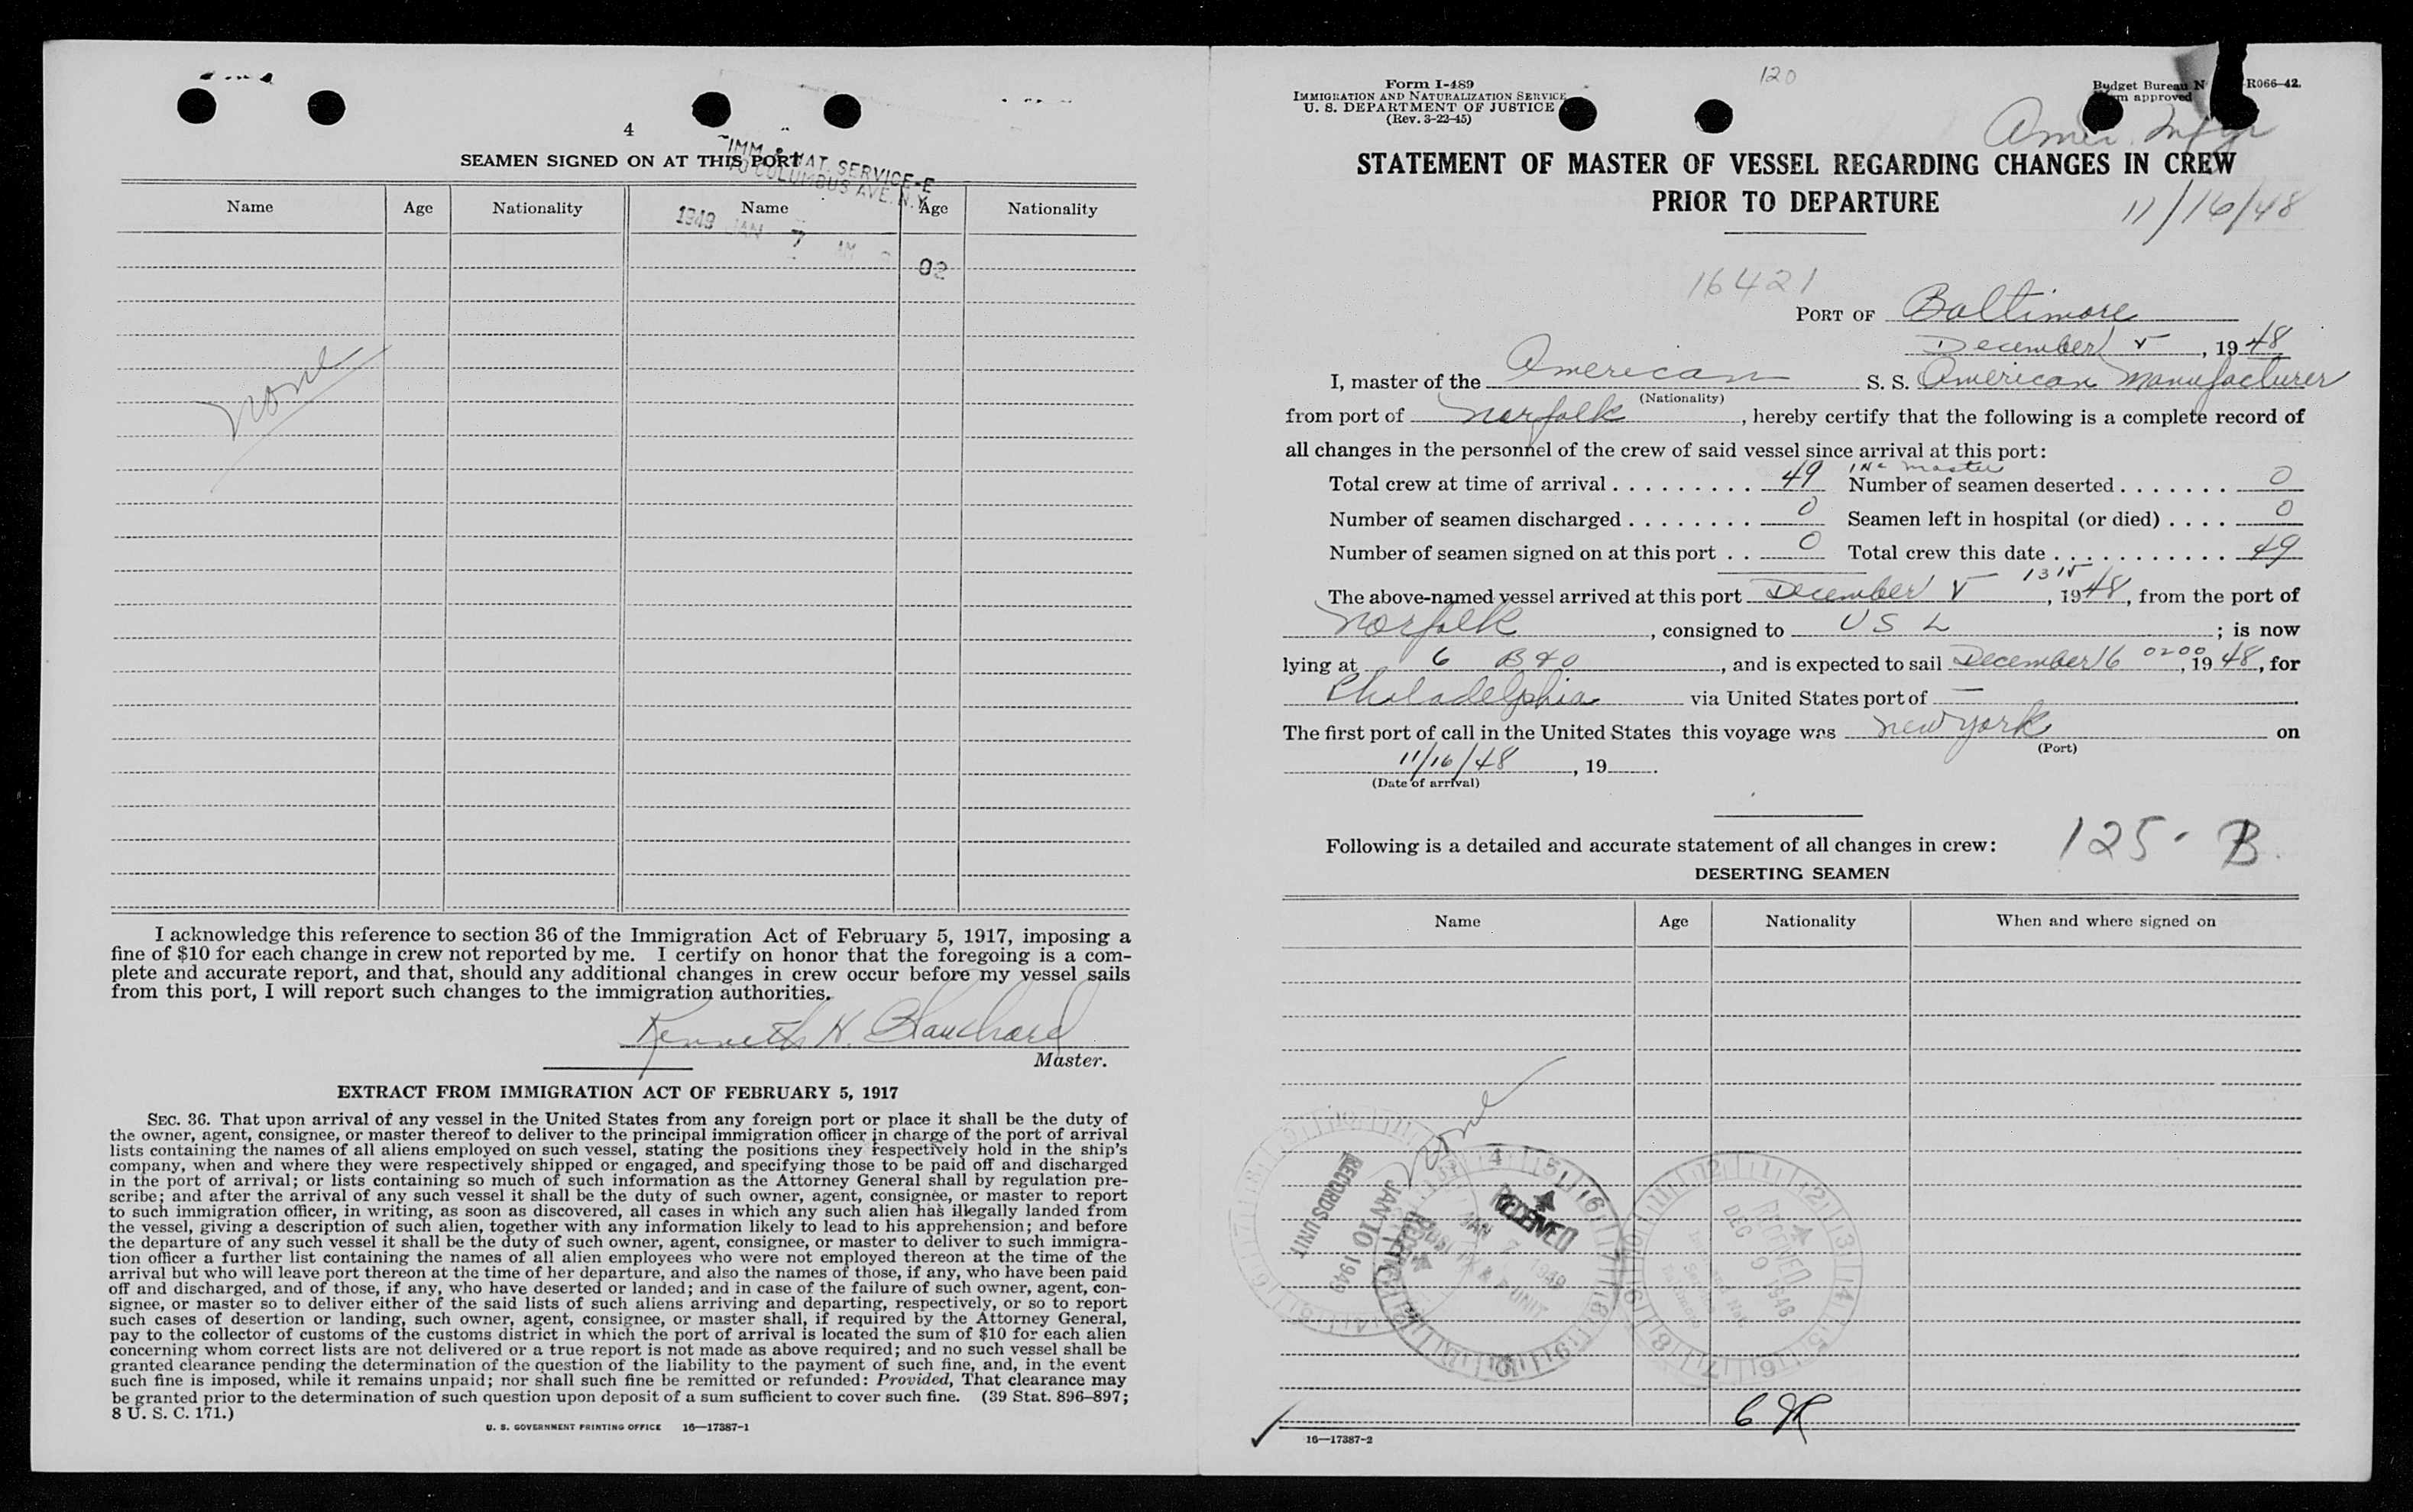 4
SEAMEN SIGNED ON AT THIS PORT
IMM. & NAT. SERVICE-E
70 COLUMBUS AVE. N.Y.
1949 JAN 7 AM
02
Name Age Nationality Name Age Nationality
None
I acknowledge this reference to section 36 of the Immigration Act of February 5, 1917, imposing a
fine of $10 for each change in crew not reported by me. I certify on honor that the foregoing is a com-
plete and accurate report, and that, should any additional changes in crew occur before my vessel sails
from this port, I will report such changes to the immigration authorities.
Kenneth H. Blanchard
Master.
EXTRACT FROM IMMIGRATION ACT OF FEBRUARY 5, 1917
SEC. 36. That upon arrival of any vessel in the United States from any foreign port or place it shall be the duty of
the owner, agent, consignee, or master thereof to deliver to the principal immigration officer in charge of the port of arrival
lists containing the names of all aliens employed on such vessel, stating the positions they respectively hold in the ship's
company, when and where they were respectively shipped or engaged, and specifying those to be paid off and discharged
in the port of arrival; or lists containing so much of such information as the Attorney General shall by regulation pre-
scribe; and after the arrival of any such vessel it shall be the duty of such owner, agent, consignee, or master to report
to such immigration officer, in writing, as soon as discovered, all cases in which any such alien has illegally landed from
the vessel, giving a description of such alien, together with any information likely to lead to his apprehension; and before
the departure of any such vessel it shall be the duty of such owner, agent, consignee, or master to deliver to such immigra-
tion officer a further list containing the names of all alien employees who were not employed thereon at the time of the
arrival but who will leave port thereon at the time of her departure, and also the names of those, if any, who have been paid
off and discharged, and of those, if any, who have deserted or landed; and in case of the failure of such owner, agent, con-
signee, or master so to deliver either of the said lists of such aliens arriving and departing, respectively, or so to report
such cases of desertion or landing, such owner, agent, consignee, or master shall, if required by the Attorney General,
pay to the collector of customs of the customs district in which the port of arrival is located the sum of $10 for each alien
concerning whom correct lists are not delivered or a true report is not made as above required; and no such vessel shall be
granted clearance pending the determination of the question of the liability to the payment of such fine, and, in the event
such fine is imposed, while it remains unpaid; nor shall such fine be remitted or refunded: Provided, That clearance may
be granted prior to the determination of such question upon deposit of a sum sufficient to cover such fine. (39 Stat. 896–897;
8 U. S. C. 171.)
U. S. GOVERNMENT PRINTING OFFICE 16—17387-1
Form I-489
IMMIGRATION AND NATURALIZATION SERVICE
U. S. DEPARTMENT OF JUSTICE
(Rev. 3-22-45)
120
Budget Bureau N R066-42.
approved
Amer. Mfgr
STATEMENT OF MASTER OF VESSEL REGARDING CHANGES IN CREW
PRIOR TO DEPARTURE
11/16/48
16421
PORT OF Baltimore
December 5, 1948
I, master of the American S. S. American Manufacturer
(Nationality)
from port of Norfolk, hereby certify that the following is a complete record of
all changes in the personnel of the crew of said vessel since arrival at this port:
Inc master
Total crew at time of arrival . . . . . . . . . . 49 Number of seamen deserted . . . . . . . 0
Number of seamen discharged . . . . . . . . 0 Seamen left in hospital (or died) . . . . 0
Number of seamen signed on at this port . . 0 Total crew this date . . . . . . . . . . . 49
The above-named vessel arrived at this port December 5 1315, 1948, from the port of
Norfolk, consigned to U S L; is now
lying at 6 B & O, and is expected to sail December 6 0200, 1948, for
Philadelphia via United States port of —.
The first port of call in the United States this voyage was New York on
(Port)
11/16/48, 19 .
(Date of arrival)
Following is a detailed and accurate statement of all changes in crew:
125 · B
DESERTING SEAMEN
Name Age Nationality When and where signed on
None
RECORDS UNIT
JAN 10 1949
RECEIVED
JAN 7 1949
RECEIVED
DEC 9 1948
16—17387-2